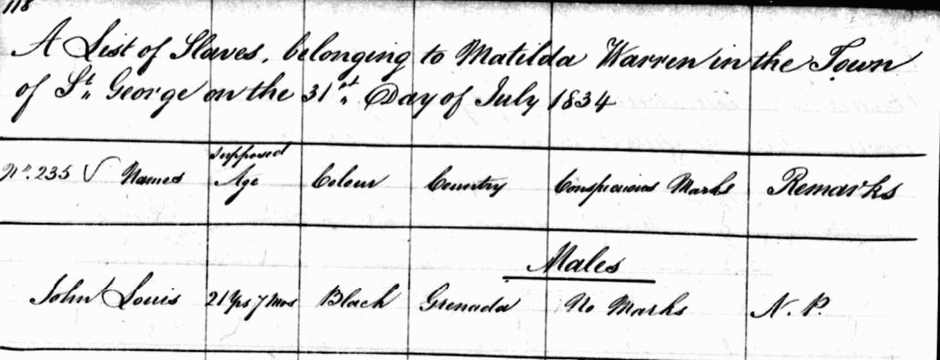 118
A List of Slaves, belonging to Matilda Warren in the Town
of St. George on the 31st. Day of July 1834
No. 235 √ Names supposed Age Colour Country Conspicuous Marks Remarks
Males
John Louis 21 Yrs 7 Mos Black Grenada No Marks N. P.